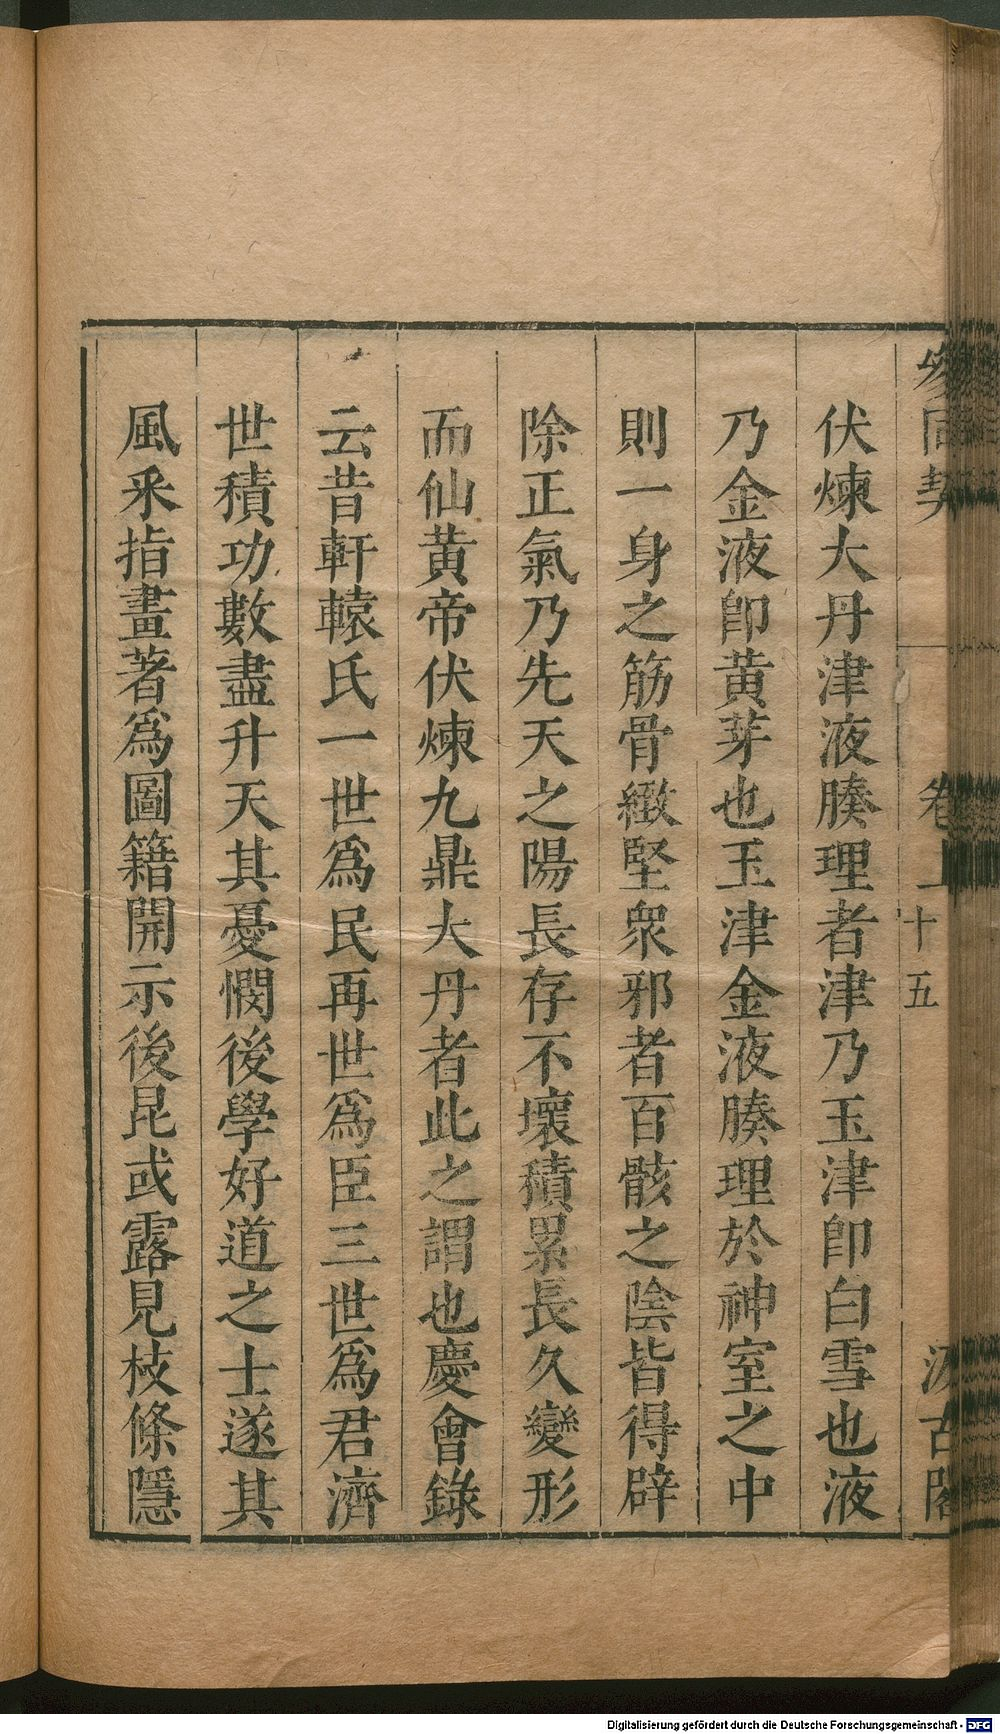 參同契 卷上 十五 汲古閣
伏煉大丹津液腠理者津乃玉津卽白雪也液
乃金液卽黃芽也玉津金液腠理於神室之中
則一身之筋骨緻堅衆邪者百骸之陰皆得辟
除正氣乃先天之陽長存不壞積累長久變形
而仙黃帝伏煉九鼎大丹者此之謂也慶會錄
云昔軒轅氏一世爲民再世爲臣三世爲君濟
世積功數盡升天其憂憫後學好道之士遂其
風釆指畫著爲圖籍開示後昆或露見枝條隱
Digitalisierung gefördert durch die Deutsche Forschungsgemeinschaft - DFG